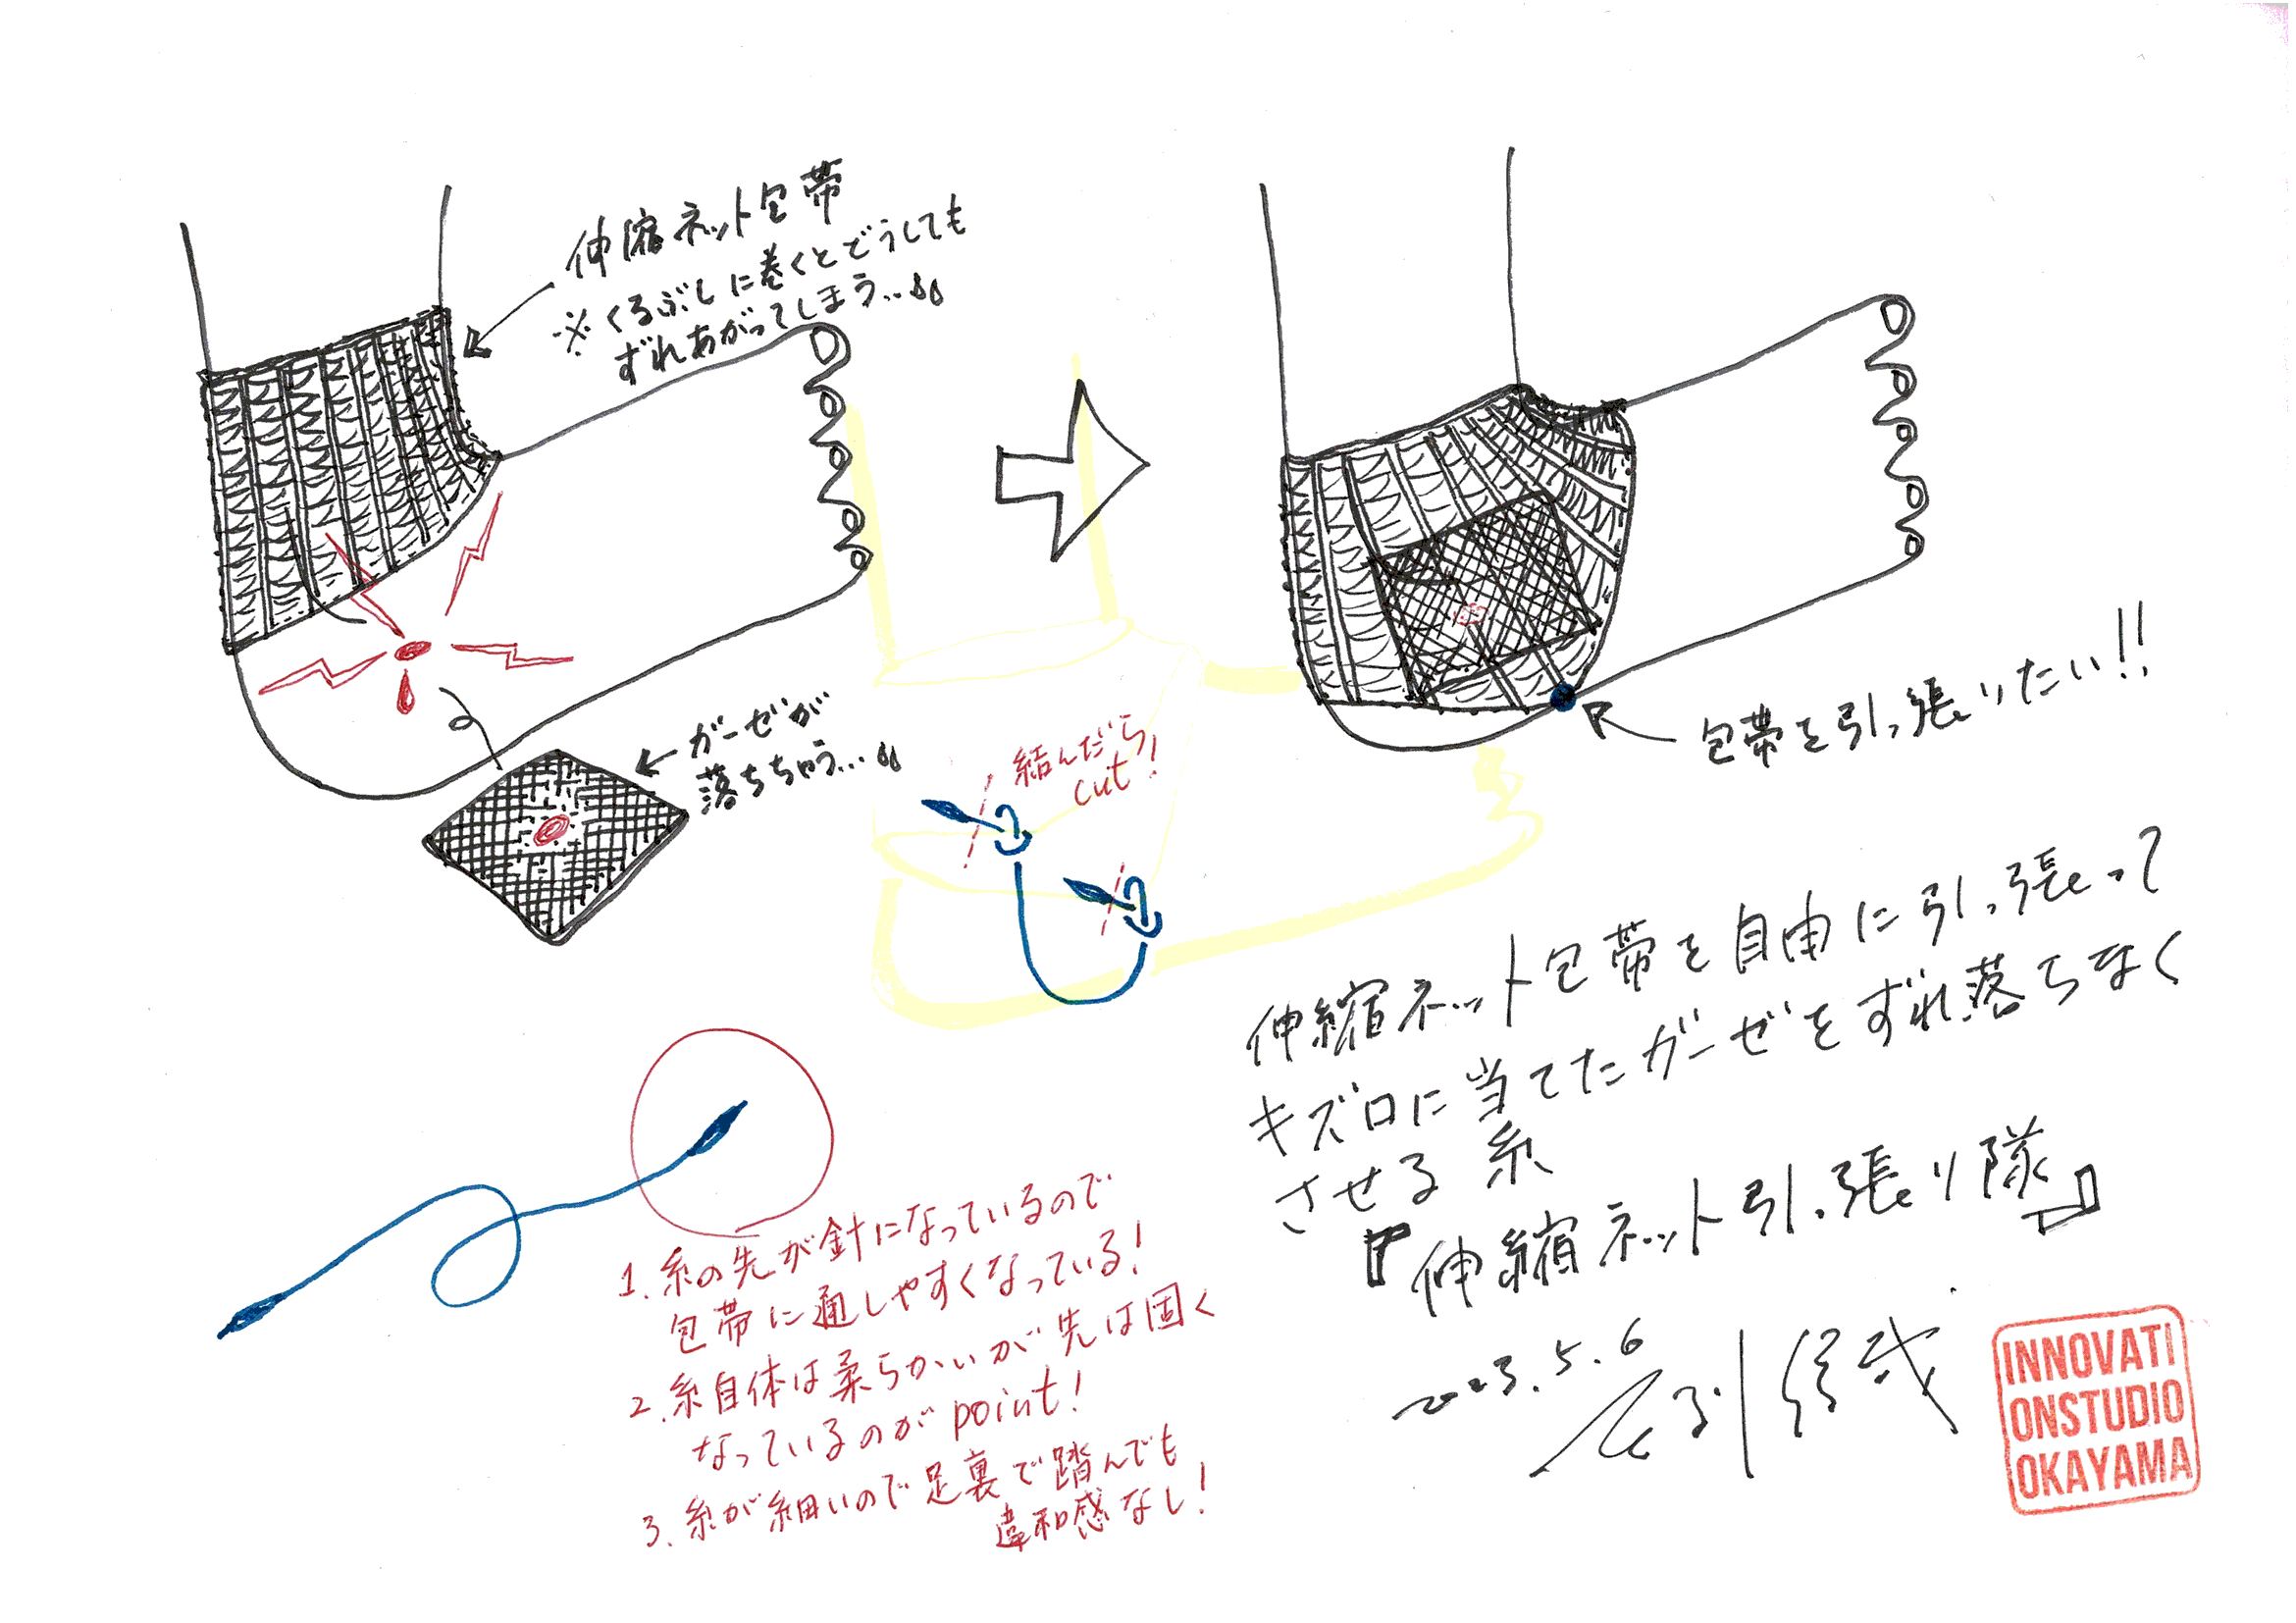 伸縮ネット包帯
※くるぶしに巻くとどうしても
ずれあがってしまう...
ガーゼが
落ちちゃう...
包帯を引っ張りたい!!
結んだら
cut!
伸縮ネット包帯を自由に引っ張って
キズ口に当てたガーゼをずれ落ちなく
させる糸
『伸縮ネット引っ張り隊』
1. 糸の先が針になっているので
包帯に通しやすくなっている!
2. 糸自体は柔らかいが先は固く
なっているのがpoint!
3. 糸が細いので足裏で踏んでも
違和感なし!
2023.5.6
INNOVATI
ONSTUDIO
OKAYAMA